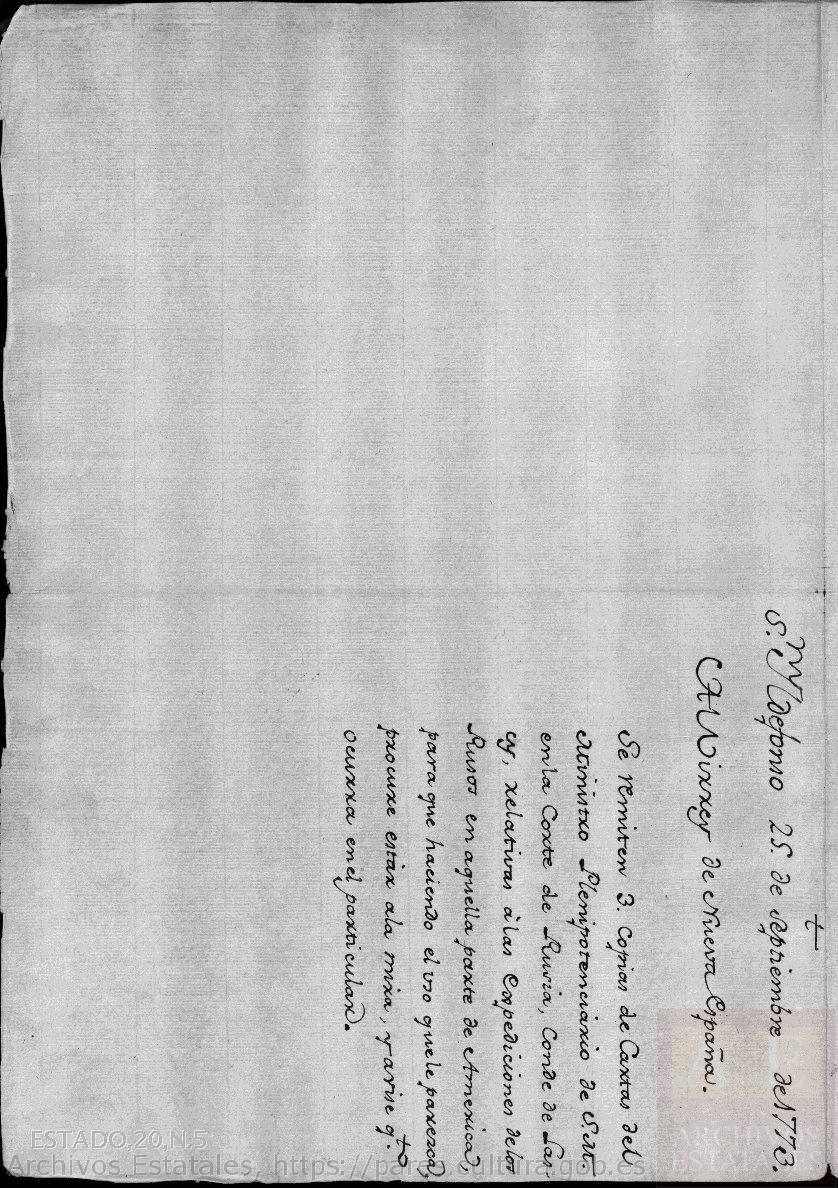 t
S.n Yldefonso 25. de Septiembre de 1773.
Al Virrey de Nueva España.
Se remiten 3. Copias de Cartas del
Ministro Plenipotenciario de S.M.
en la Corte de Rusia, Conde de Las-
cy, relativas à las Expediciones delos
Rusos en aquella parte de America
para que haciendo el uso que le parezca,
procure estàr ala mira, y avise q.to
ocurra en el particular.
ESTADO,20,N.5
Archivos Estatales, https://pares.cultura.gob.es
ARCHIVOS
ESTATALES